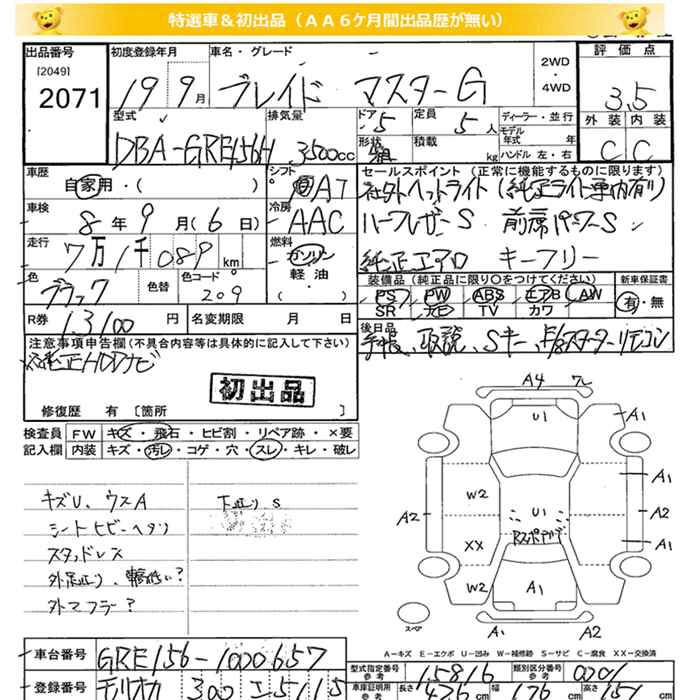 特選車＆初出品（ＡＡ６ケ月間出品歴が無い）
出品番号 初度登録年月 車名・グレード 2WD・4WD 評価点
[2049]
2071 19 9月 ブレイド マスターG 3.5
型式 排気量 ドア 定員 ディーラー・並行 外装 内装
DBA-GRE156H 3500cc 5 5人 モデル年式 年
形状 積載 kg ハンドル 左・右 C C
車歴 シフト セールスポイント (正常に機能するものに限ります)
自家用・( ) AT 社外ヘットライト (純正ライト車内有り)
車検 冷房 ハーフレザーS 前席パワーS
8年 9月 (6日) AAC
走行 燃料 純正エアロ キーフリー
7万1千089km ガソリン
色 色替 色コード 軽油 装備品 (純正品に限り○をつけてください) 新車保証書
ブラック 209 ・( ) PS PW ABS エアB AW 有・無
SR ナビ TV カワ
R券 13100円 名変期限 月 日 後日品
手帳、取説、Sキー、
注意事項申告欄(不具合内容等は具体的に記入して下さい)
純正HDDナビ
初出品
修復歴 有 [箇所 ]
検査員 FW キズ・飛石・ヒビ割・リペア跡・×要
記入欄 内装 キズ・汚レ・コゲ・穴・スレ・キレ・破レ
キズU、ウスA 下廻り S
シートヒビ・ヘタリ
スタッドレス
外足廻り、車高低い?
外マフラー?
A4
U1 A1
W2 A1
A2 U1 A2
XX A1
W2 A1
A1 A2
スペア
A-キズ E-エクボ U-凹み W-補修跡 S-サビ C-腐食 XX-交換済
車台番号 GRE156-1000657 型式指定番号 参考 15816 類別区分番号 参考 0001
登録番号 300 車庫証明用 参考 長さ 426cm 幅 176cm 高さ 151cm